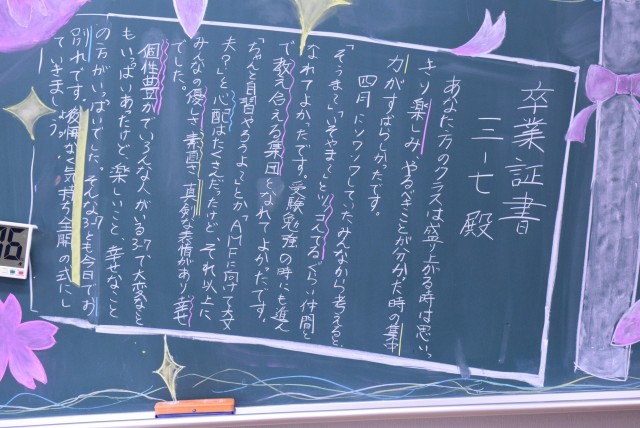 卒業証書
三-七 殿
あなた方のクラスは盛り上がる時は思いっ
きり楽しみ、やるべきことが分かった時の集中
力がすばらしかったです。
四月にソワソワしていたみんなから考えると、
「そぅま~」「いそやま~」とツッコんでるくらい仲間と
なれてよかったです。受験勉強の時にも進ん
で教え合える集団となれてよかったです。
「ちゃんと自習やろうよ」とか「AMFに向けて大丈
夫?」と心配はたくさんだったけど、それ以上に
みんなの優しさ、素直さ、真剣な表情があり幸せ
でした。
個性豊かでいろんな人がいる3-7で大変なこと
もいっぱいあったけど、楽しいこと、幸せなこと
の方がいっぱいでした。そんな3-7も今日でお
別れです。後悔なく気持ち全開の式にし
ていきましょう。